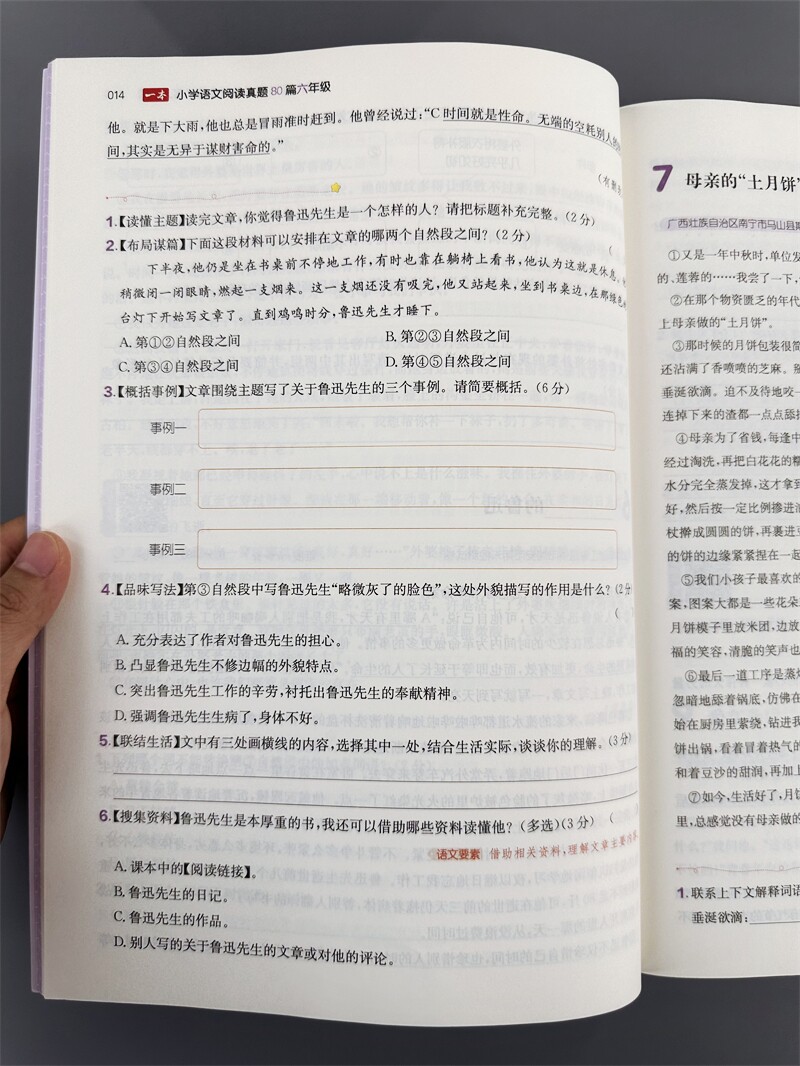 014 一本 小学语文阅读真题80篇六年级
他。就是下大雨，他也总是冒雨准时赶到。他曾经说过：“C时间就是性命。无端的空耗别人的
间，其实是无异于谋财害命的。”
1.【读懂主题】读完文章，你觉得鲁迅先生是一个怎样的人？请把标题补充完整。（2分）
2.【布局谋篇】下面这段材料可以安排在文章的哪两个自然段之间？（2分） （
下半夜，他仍是坐在书桌前不停地工作，有时也靠在躺椅上看书，他认为这就是休息。
稍微闭一闭眼睛，燃起一支烟来。这一支烟还没有吸完，他又站起来，坐到书桌边，在那绿色
台灯下开始写文章了。直到鸡鸣时分，鲁迅先生才睡下。
A. 第①②自然段之间 B. 第②③自然段之间
C. 第③④自然段之间 D. 第④⑤自然段之间
3.【概括事例】文章围绕主题写了关于鲁迅先生的三个事例。请简要概括。（6分）
事例一
事例二
事例三
4.【品味写法】第③自然段中写鲁迅先生“略微灰了的脸色”，这处外貌描写的作用是什么？（2分
（
A. 充分表达了作者对鲁迅先生的担心。
B. 凸显鲁迅先生不修边幅的外貌特点。
C. 突出鲁迅先生工作的辛劳，衬托出鲁迅先生的奉献精神。
D. 强调鲁迅先生生病了，身体不好。
5.【联结生活】文中有三处画横线的内容，选择其中一处，结合生活实际，谈谈你的理解。（3分）
6.【搜集资料】鲁迅先生是本厚重的书，我还可以借助哪些资料读懂他？（多选）（3分） （
语文要素 借助相关资料，理解文章主要内容
A. 课本中的【阅读链接】。
B. 鲁迅先生的日记。
C. 鲁迅先生的作品。
D. 别人写的关于鲁迅先生的文章或对他的评论。
7 母亲的“土月饼”
广西壮族自治区南宁市马山县期
①又是一年中秋时，单位发
的、莲蓉的……我尝了一下，
②在那个物资匮乏的年代
上母亲做的“土月饼”。
③那时候的月饼包装很简
还沾满了香喷喷的芝麻。掰
垂涎欲滴。迫不及待地咬一
连掉下来的渣都一点点舔
④母亲为了省钱，每逢中
经过淘洗，再把白花花的糯
水分完全蒸发掉，这才拿到
好，然后按一定比例掺进
杖擀成圆圆的饼，再裹进豆
的饼的边缘紧紧捏在一起
⑤我们小孩子最喜欢的
案，图案大都是一些花朵
月饼模子里放米团，边放
福的笑容，清脆的笑声也
⑥最后一道工序是蒸
忽暗地舔着锅底，仿佛在
始在厨房里萦绕，钻进我
饼出锅，看着冒着热气的
和着豆沙的甜润，再加上
⑦如今，生活好了，月饼
里，总感觉没有母亲做的
1. 联系上下文解释词语
垂涎欲滴：